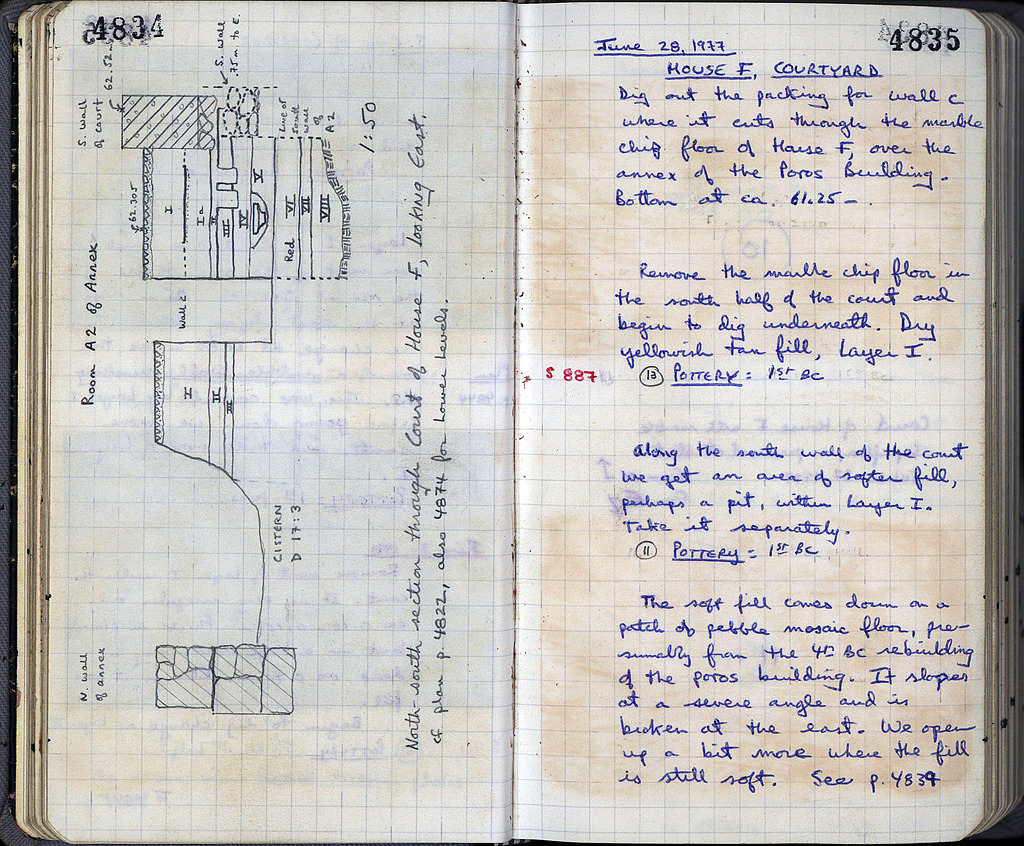 4834
S. wall
of court
62.52
S. wall
.75 m to E.
62.305
I
Ia
II
III
IV
V
VI
VII
VIII
Red
Line of
South
wall
of
A2
1:50
Room A2 of Annex
Wall c
I
II
III
CISTERN
D 17:3
N. wall
of annex
North-south section through Court of House F, looking East.
cf plan p. 4822, also 4874 for lower levels.
4835
June 28, 1977
HOUSE F, COURTYARD
Dig out the packing for wall c
where it cuts through the marble
chip floor of House F, over the
annex of the Poros Building.
Bottom at ca. 61.25 -.
Remove the marble chip floor in
the south half of the court and
begin to dig underneath. Dry
yellowish tan fill, Layer I.
S 887
13 POTTERY = 1st BC
Along the south wall of the court
we get an area of softer fill,
perhaps a pit, within Layer I.
Take it separately.
11 POTTERY = 1st BC
The soft fill comes down on a
patch of pebble mosaic floor, pre-
sumably from the 4th BC rebuilding
of the poros building. It slopes
at a severe angle and is
broken at the east. We open
up a bit more where the fill
is still soft. See p. 4839